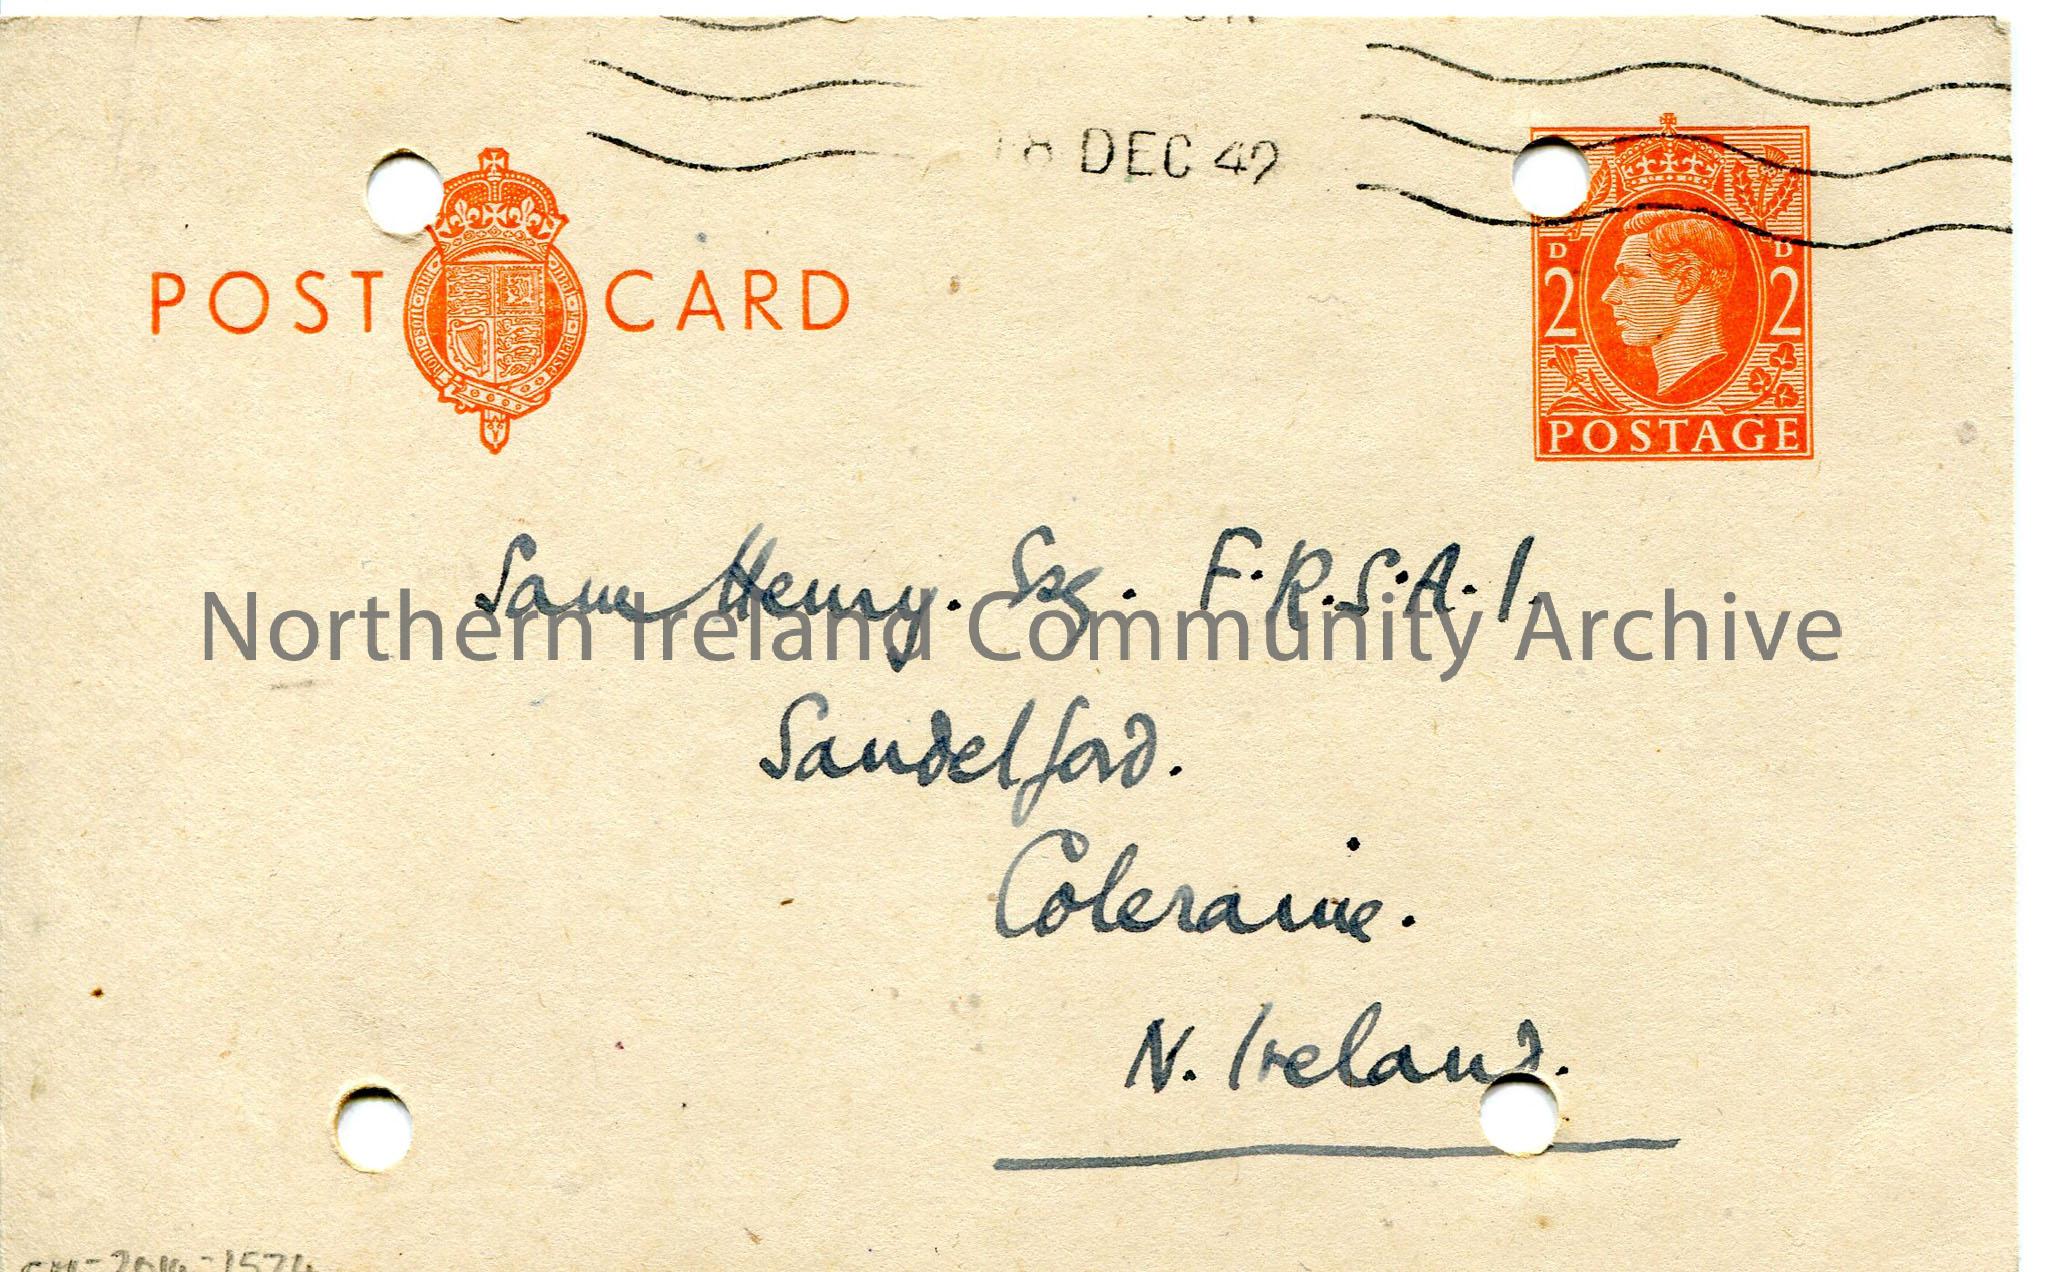 18 DEC 49
POST CARD
D D
2 2
POSTAGE
Sam Henry. Esq. F.R.S.A.I.
Northern Ireland Community Archive
Sandelford.
Coleraine.
N. Ireland.